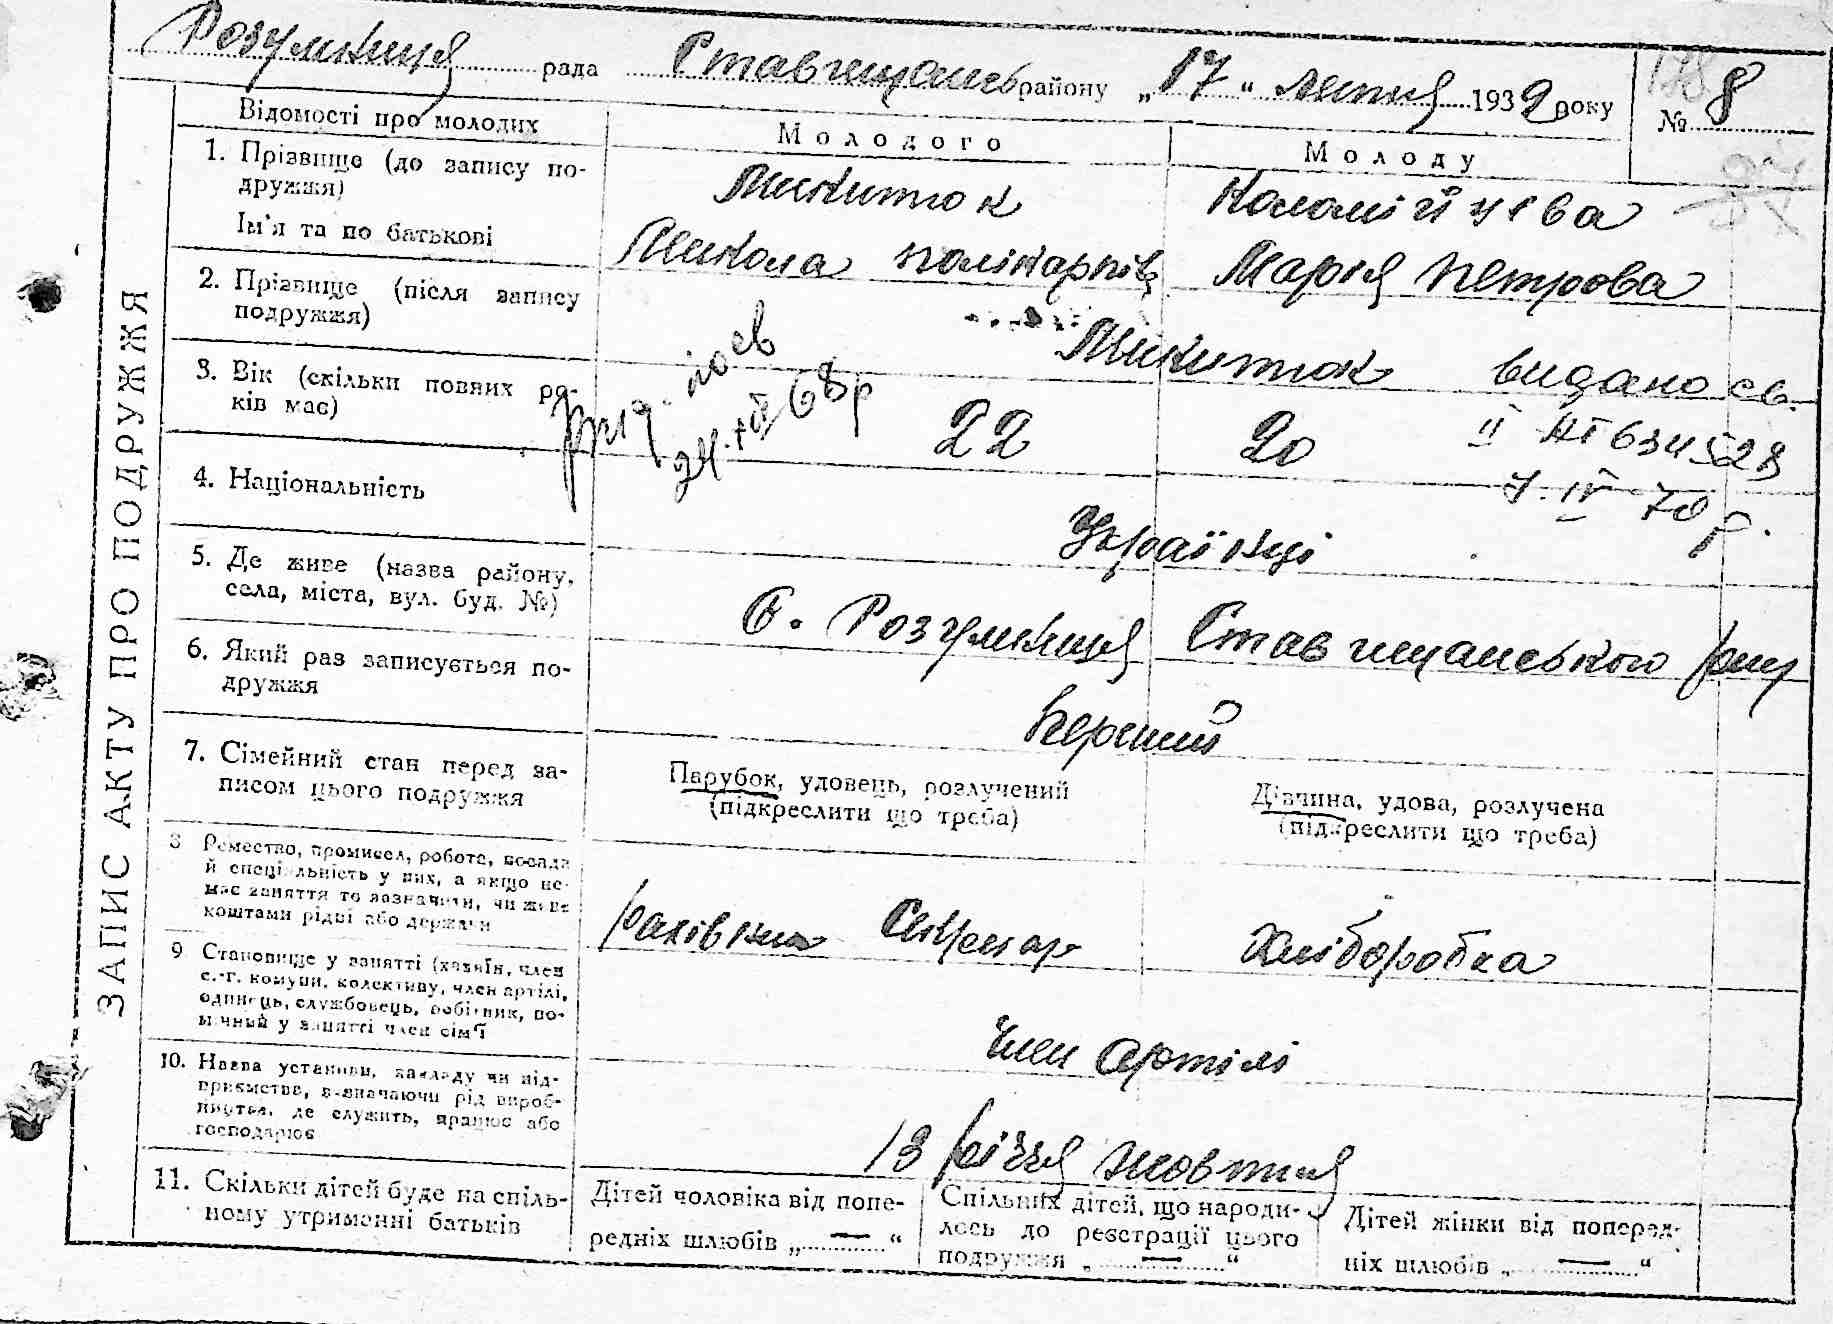 Розумниця рада Ставищансь району „17“ липня 1939 року
№ 8
Відомості про молодих
Молодого
Молоду
1. Прізвище (до запису по-
дружжя)
Микитюк
Коломійцева
Ім'я та по батькові
Микола Полікарпів
Марія Петрова
2. Прізвище (після запису
подружжя)
Микитюк видано св.
II 634523
7. IV 70 р.
24. 68р
3. Вік (скільки повних ро-
ків має)
22
20
4. Національність
Українці
5. Де живе (назва району,
села, міста, вул. буд. №)
С. Розумниця Ставищанського р-ну
6. Який раз записується по-
дружжя
Перший
7. Сімейний стан перед за-
писом цього подружжя
Парубок, удовець, розлучений
(підкреслити що треба)
Дівчина, удова, розлучена
(підкреслити що треба)
8 Ремество, промисел, робота, посада
й спеціальність у них, а якщо не-
має заняття то зазначити, чи живе
коштами рідні або держави
Хліборобка
9 Становище у занятті (хазяїн, член
с.-г. комуни, колективу, член артілі,
одинець, службовець, робітник, по-
мічний у занятті член сім'ї
Член артілі
10. Назва установи, закладу чи під-
приємства, визначаючи рід вироб-
ництва, де служить, працює або
господарює
13 річчя жовтня
11. Скільки дітей буде на спіль-
ному утриманні батьків
Дітей чоловіка від попе-
редніх шлюбів „ — “
Спільних дітей, що народи-
лось до реєстрації цього
подружжя „ — “
Дітей жінки від поперед-
ніх шлюбів „ — “
ЗАПИС АКТУ ПРО ПОДРУЖЖЯ